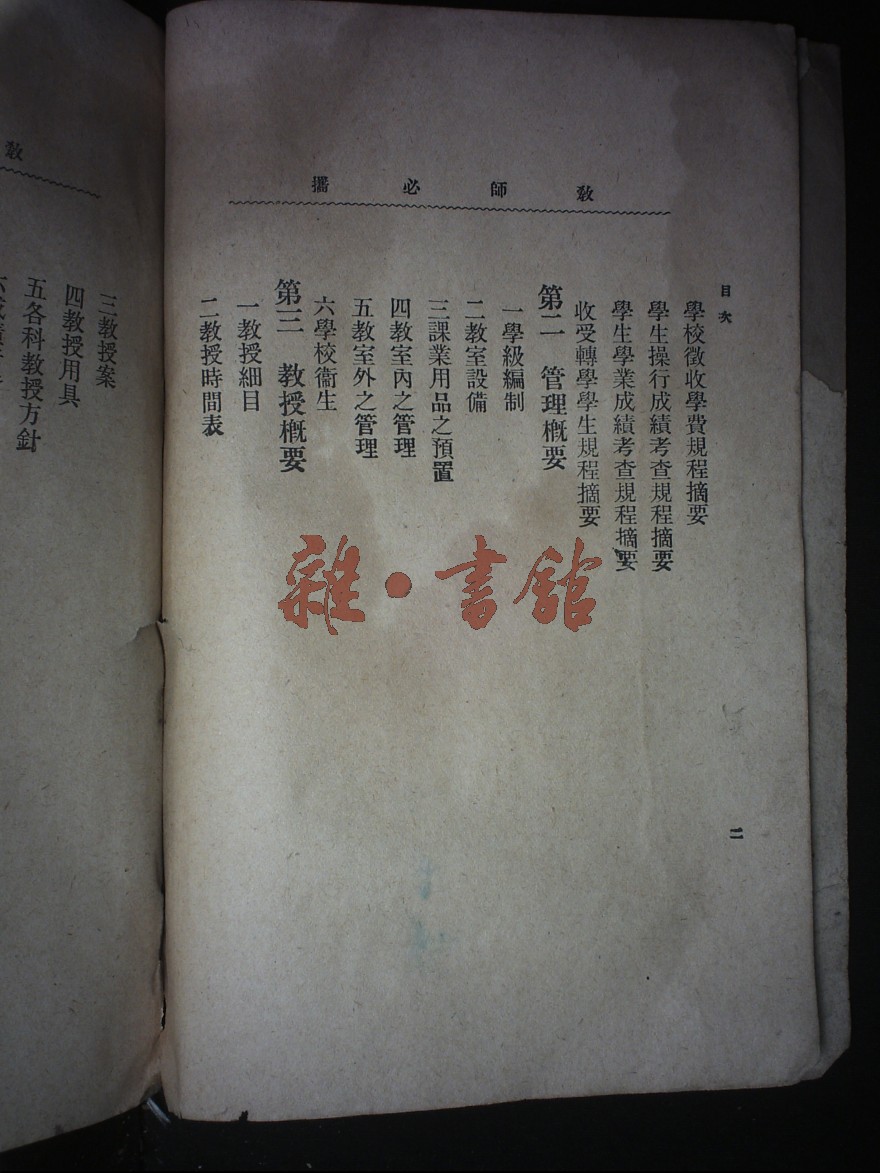 教師必攜
目次
學校徵收學費規程摘要
學生操行成績考查規程摘要
學生學業成績考查規程摘要
收受轉學學生規程摘要
第二 管理概要
一學級編制
二教室設備
三課業用品之預置
四教室內之管理
五教室外之管理
六學校衞生
第三 教授概要
一教授細目
二教授時間表
二
雜·書館
教
三教授案
四教授用具
五各科教授方針
六成績